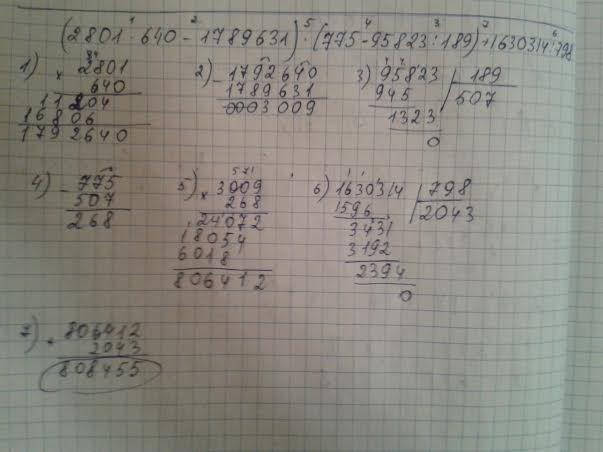 (2801 · 640 - 1789631) · (775 - 95823 : 189) + 1630314 : 798
1) × 2801
640
11204
16806
1792640
2) - 1792640
1789631
0003009
3) 95823 | 189
945 507
1323
0
4) - 775
507
268
5) × 3009
268
24072
18054
6018
806412
6) 1630314 | 798
1596 2043
3431
3192
2394
0
7) + 806412
2043
808455